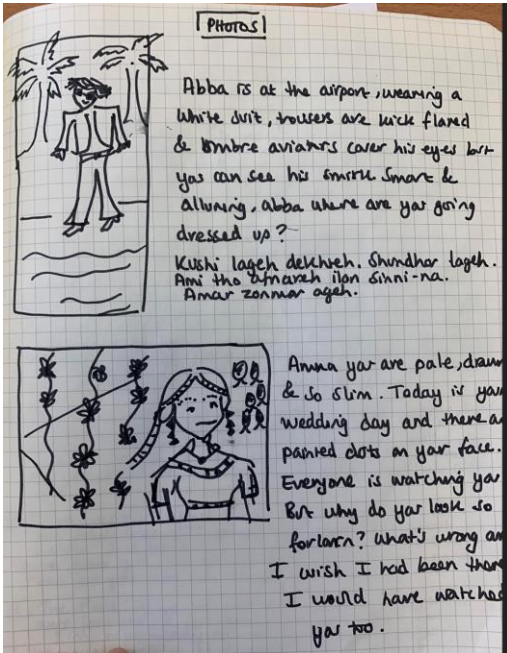 PHOTOS
Abba is at the airport, wearing a
white suit, trousers are kick flared
& ombre aviators cover his eyes but
you can see his smirk smart &
alluring, abba where are you going
dressed up?
Kushi lageh dekhteh. Shundhor lageh.
Ami tho afnareh ilan sinni-na.
Amar zonmor ageh.
Amma you are pale, drawn
& so slim. Today is your
wedding day and there a
painted dots on your face.
Everyone is watching you
But why do you look so
forlorn? What's wrong am
I wish I had been there
I would have watched
you too.